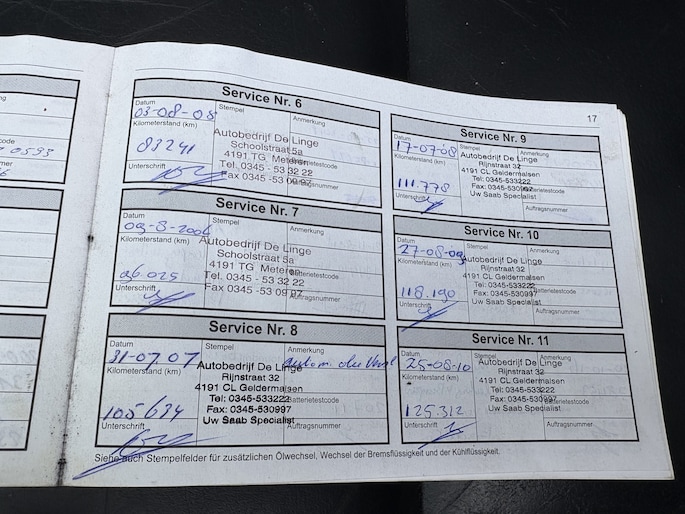 Service Nr. 6
Datum
Stempel
Anmerkung
03-08-05
Kilometerstand (km)
Autobedrijf De Linge
Schoolstraat 5a
83241
4191 TG Meteren
Tel. 0345 - 53 32 22
Unterschrift
Fax 0345 - 53 09 97
Service Nr. 7
Datum
Stempel
Anmerkung
09-8-2006
Kilometerstand (km)
Autobedrijf De Linge
Schoolstraat 5a
4191 TG Meteren
96.025
Tel. 0345 - 53 32 22
Batterietestcode
Unterschrift
Fax 0345 - 53 09 97
Auftragsnummer
Service Nr. 8
Datum
Stempel
Anmerkung
31-07-07
autom.
Kilometerstand (km)
Autobedrijf De Linge
Rijnstraat 32
4191 CL Geldermalsen
105634
Tel: 0345-533222
Batterietestcode
Fax: 0345-530997
Unterschrift
Uw Saab Specialist
Auftragsnummer
17
Service Nr. 9
Datum
Stempel
Anmerkung
17-07-08
Kilometerstand (km)
Autobedrijf De Linge
Rijnstraat 32
4191 CL Geldermalsen
111.778
Tel: 0345-533222
Fax: 0345-530997
Batterietestcode
Unterschrift
Uw Saab Specialist
Auftragsnummer
Service Nr. 10
Datum
Stempel
Anmerkung
27-08-09
Kilometerstand (km)
Autobedrijf De Linge
Rijnstraat 32
4191 CL Geldermalsen
118.190
Tel: 0345-533222
Batterietestcode
Fax: 0345-530997
Unterschrift
Uw Saab Specialist
Auftragsnummer
Service Nr. 11
Datum
Stempel
Anmerkung
25-08-10
Kilometerstand (km)
Autobedrijf De Linge
Rijnstraat 32
4191 CL Geldermalsen
125.312
Tel: 0345-533222
Batterietestcode
Fax: 0345-530997
Unterschrift
Uw Saab Specialist
Auftragsnummer
Siehe auch Stempelfelder für zusätzlichen Ölwechsel, Wechsel der Bremsflüssigkeit und der Kühlflüssigkeit.